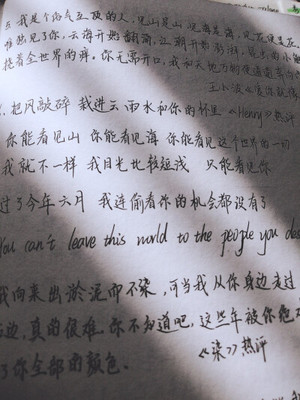 5. 我是个俗气至极的人,见山是山,见海是海,见花便是花
唯独见了你,云海开始翻涌,江潮开始澎湃,昆虫的小
挠着全世界的痒。你无需开口,我和天地万物便通通奔向
王小波《
把风敲碎 我进云雨水和你的怀里 《Henry》热评
你能看见山 你能看见海 你能看见这个世界的一切
我就不一样 我目光比较短浅 只能看见你
过了今年六月 我连偷看你的机会都没有了
You can't leave this world to the people you des
我向来出淤泥而不染,可当我从你身边走过
边,真的很难。你不知道吧,这些年被你
了你全部的颜色。
《染》热评